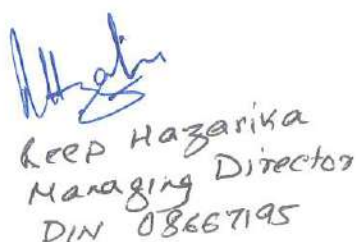 Reep Hazarika
Managing Director
DIN 08667195